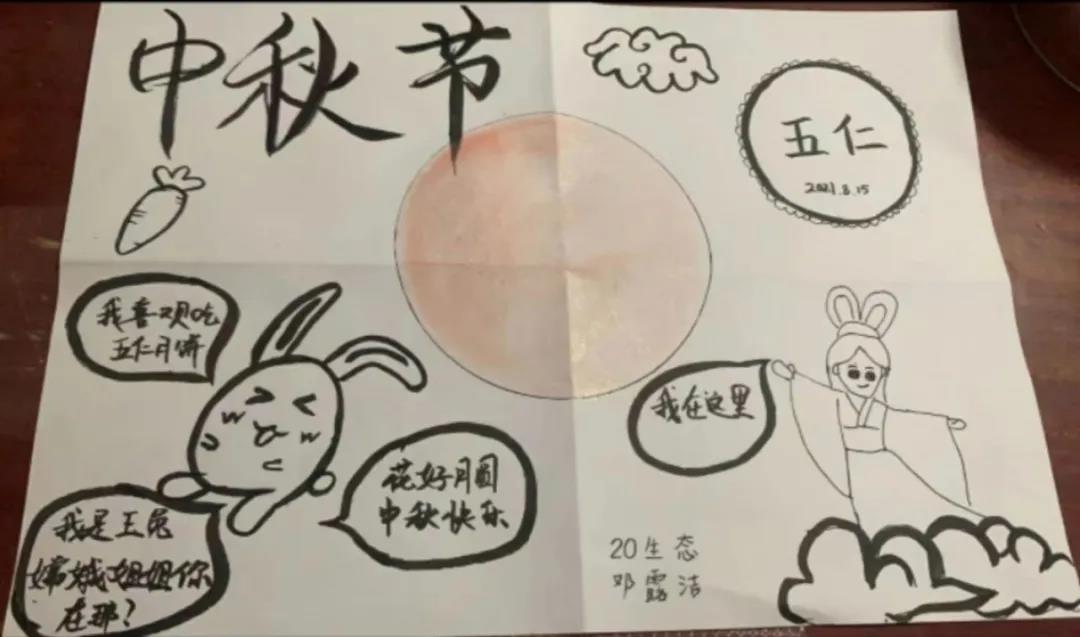 中秋节
五仁
2021.8.15
我喜欢吃
五仁月饼
我在这里
花好月圆
中秋快乐
我是玉兔
嫦娥姐姐你
在那?
20生态
邓露洁